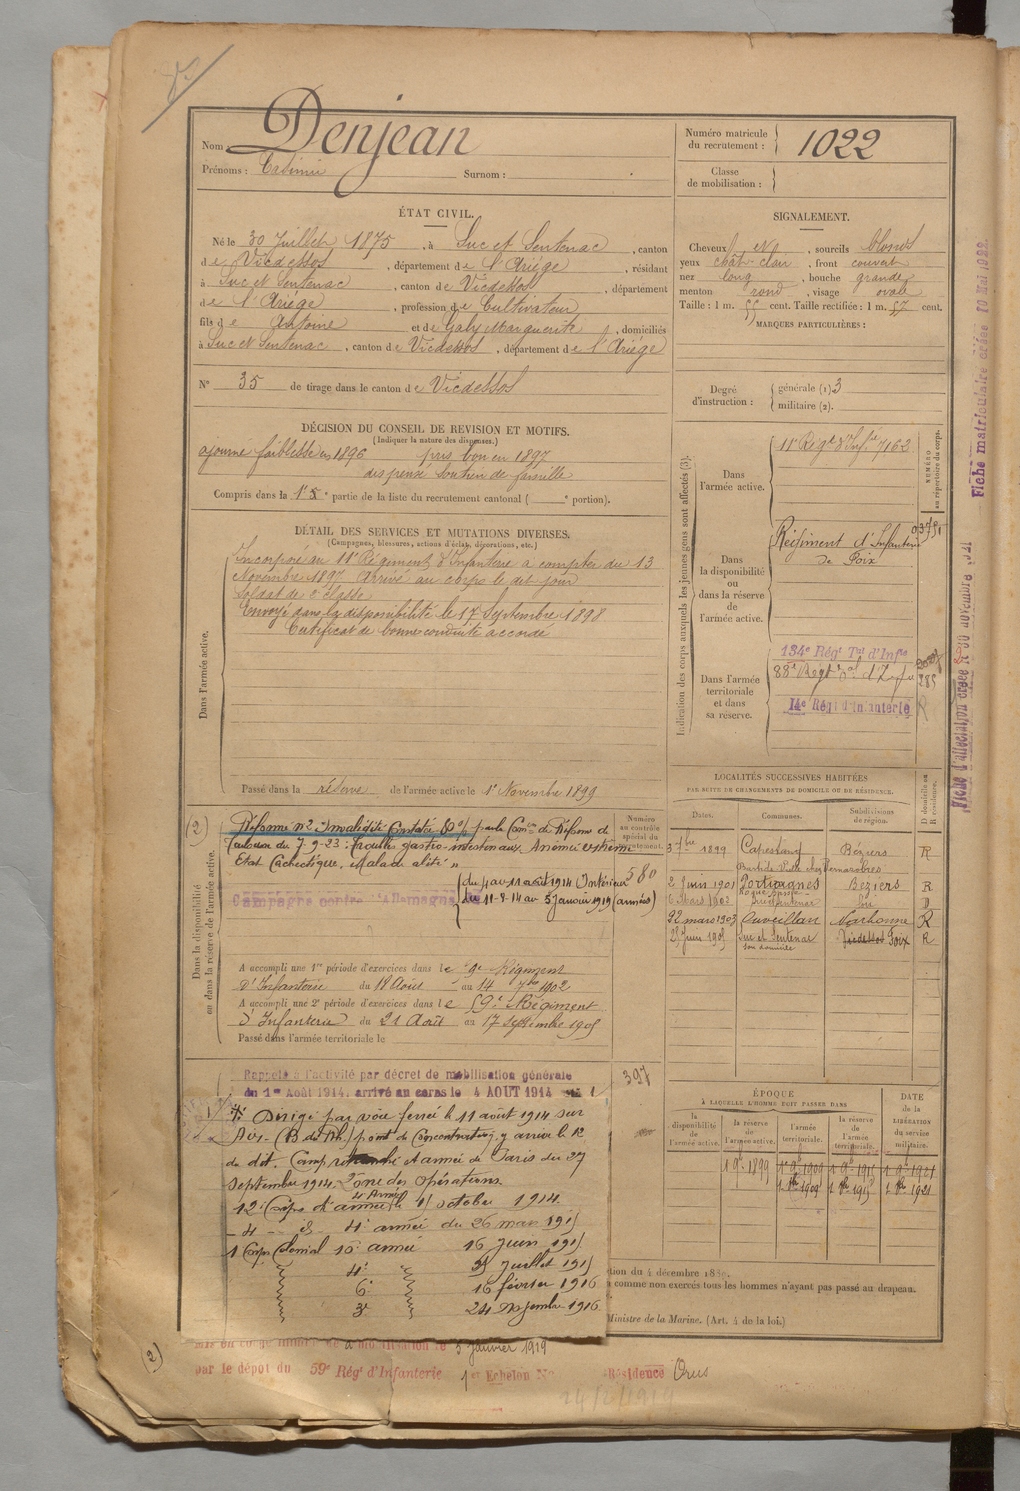 Nom : Denjean
Prénoms : Casimir Surnom :
Numéro matricule
du recrutement : 1022
Classe
de mobilisation :
ÉTAT CIVIL.
Né le 30 Juillet 1875, à Suc et Sentenac, canton
de Vicdessos, département de l'Ariège, résidant
à Suc et Sentenac, canton de Vicdessos, département
de l'Ariège, profession de Cultivateur
fils de Antoine et de Galy Marguerite, domiciliés
à Suc et Sentenac, canton de Vicdessos, département de l'Ariège
N° 35 de tirage dans le canton de Vicdessos
SIGNALEMENT.
Cheveux sourcils blonds
yeux chât-clair, front couvert
nez long, bouche grande
menton rond, visage ovale
Taille : 1 m. 55 cent. Taille rectifiée : 1 m. 57 cent.
MARQUES PARTICULIÈRES :
Degré
d'instruction : générale (1) 3
militaire (2).
DÉCISION DU CONSEIL DE REVISION ET MOTIFS.
(Indiquer la nature des dispenses.)
ajourné faiblesse en 1896 pris bon en 1897
dispensé soutien de famille
Compris dans la partie de la liste du recrutement cantonal ( e portion).
DÉTAIL DES SERVICES ET MUTATIONS DIVERSES.
(Campagnes, blessures, actions d'éclat, décorations, etc.)
Dans l'armée active.
Incorporé au 11e Régiment d'Infanterie à compter du 13
Novembre 1897 Arrivé au corps le dit jour
Soldat de 2e classe
Envoyé dans la disponibilité le 17 Septembre 1898
Certificat de bonne conduite accordé
Passé dans la réserve de l'armée active le 1er Novembre 1899
Indication des corps auxquels les jeunes gens sont affectés (3).
NUMÉRO
au répertoire du corps.
Dans
l'armée active.
11e Régt d'Infie 7162
Dans
la disponibilité
ou
dans la réserve
de l'armée active.
Régiment d'Infanterie
de Foix
Dans l'armée
territoriale
et dans
sa réserve.
134e Régt Tal d'Infie
14e Régt d'Infanterie
Fiche matriculaire créée 10 Mai 1922
Fiche d'affectation créée le 30 novembre
LOCALITÉS SUCCESSIVES HABITÉES
PAR SUITE DE CHANGEMENTS DE DOMICILE OU DE RÉSIDENCE.
Dates. Communes. Subdivisions
de région.
D domicile ou
R résidence.
1899 Capestang Béziers R
2 Juin 1901 Portiragnes Béziers R
6 Mars 1902 D
22 mars 1903 Ouveillan Narbonne R
juin 1905 Suc et Sentenac Vicdessos Foix R
son domicile
Dans la disponibilité
ou dans la réserve de l'armée active.
Numéro
au contrôle
spécial du
Réformé n°2 Invalidité Constatée 80% par la Comon de Réforme de
Toulouse du 7-9-23 : Troubles gastro-intestinaux. Anémie extrême
Etat Cachectique. Maladalité "
580
Campagne contre l'Allemagne
du 4 au 11 août 1914 Intérieur
du 11-8-14 au 5 Janvier 1919 (armées)
A accompli une 1re période d'exercices dans le Régiment
d'Infanterie du 18 Août au 14 7bre 1902
A accompli une 2e période d'exercices dans le 59e Régiment
d'Infanterie du 21 Août au 17 Septembre 1905
Passé dans l'armée territoriale le
397
Rappelé à l'activité par décret de mobilisation générale
du 1er Août 1914, arrivé au corps le 4 AOUT 1914
Dirigé par voie ferrée le 11 août 1914 sur
(B. du Rh.) point de Concentration y arrive le 12
du dit. Camp retranché et armée de Paris du 27
septembre 1914. Zone des opérations.
12e Corps d'armée 4e Armée octobre 1914
4e armée du 26 mars 1915
1 Corps Colonial 10e armée 16 Juin 1915
4e " Juillet 1915
6e " 16 février 1916
3e " 24 Novembre 1916
ÉPOQUE
À LAQUELLE L'HOMME DOIT PASSER DANS
la disponibilité
de l'armée active.
la réserve
de l'armée active.
l'armée
territoriale.
la réserve
de l'armée
territoriale.
DATE
de la
LIBÉRATION
du service
militaire.
1 9bre 1899 1 9bre 1909 1 9bre 1915 1 9bre 1921
1 8bre 1909 1 8bre 1915 1 8bre 1921
du 4 décembre 1889.
comme non exercés tous les hommes n'ayant pas passé au drapeau.
Ministre de la Marine. (Art. 4 de la loi.)
Mis en congé illimité de démobilisation le 5 Janvier 1919
par le dépôt du 59e Régt d'Infanterie 1er Echelon N° Résidence Orus